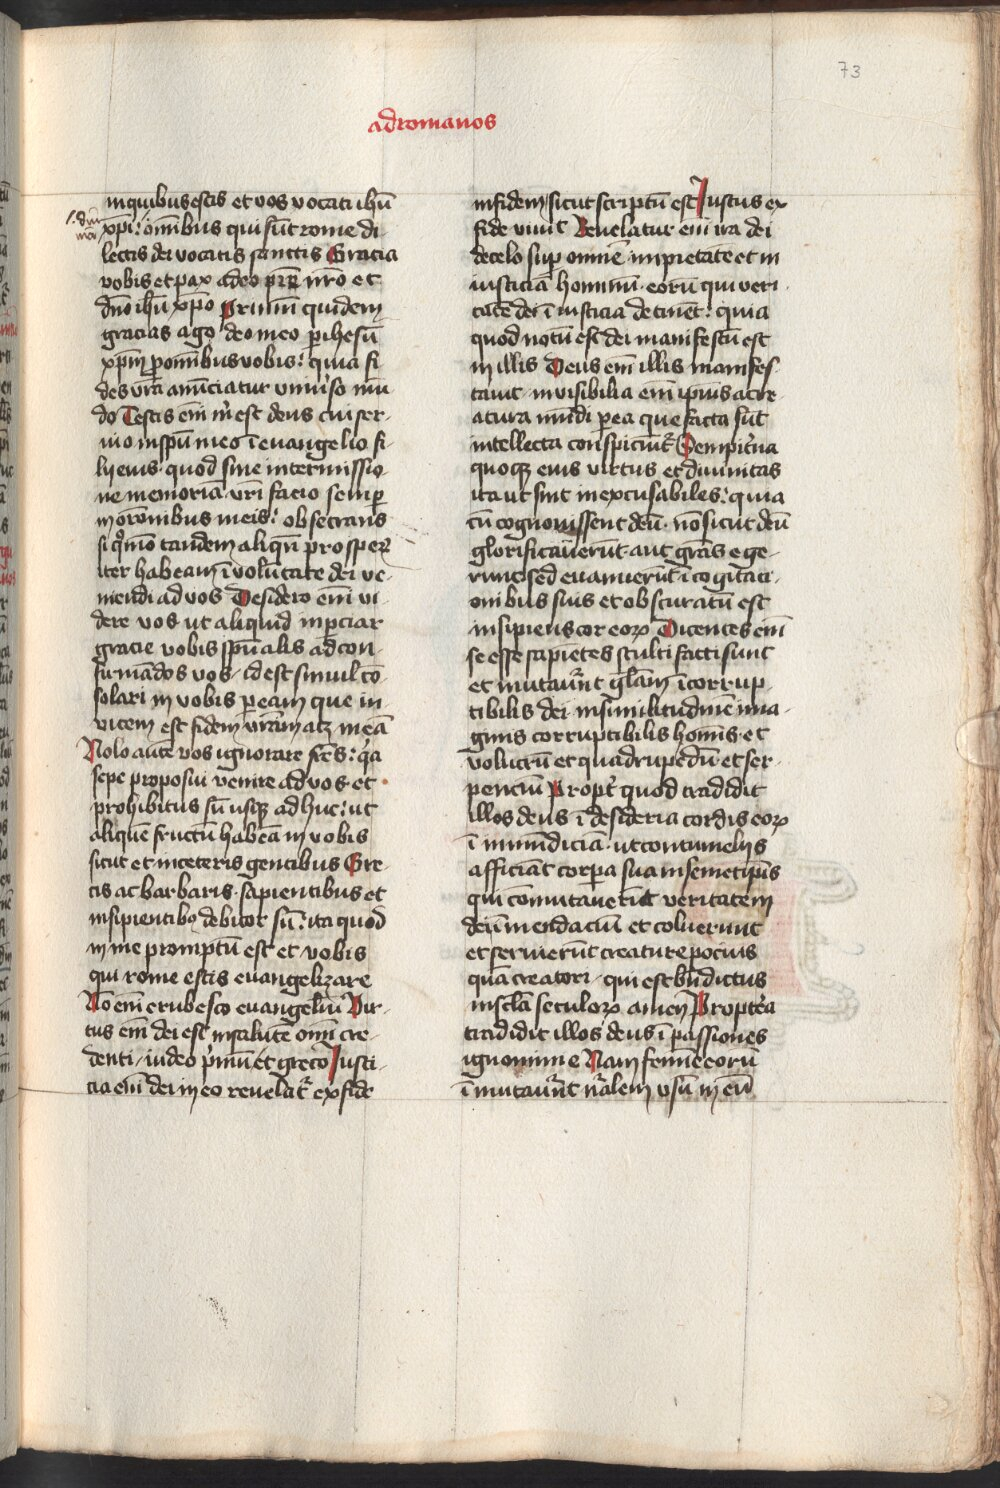 73
ad romanos
in quibus estis et vos vocati ihū
xp̄i: oīnibus qui sūt rome di
lectis dei vocatis sanctis Gracia
vobis et pax a deo pr̄e nr̄o et
dn̄o ihū xp̄o Primū quidem
gracias ago deo meo p ihesū
xp̄m p omībus vobis: quia fi
des vr̄a anūciatur vniuso mū
do Testis em̄ m̄ est deus cui ser-
uio in spū meo ī euangelio fi-
lij eius quod sine intermissio
ne memoriā vr̄i facio semp
in orōnibus meis: obsecrans
si q̊mō tandem aliqn̄ prosperꝝ
iter habeam ī volūtate dei ve-
niendi ad vos Desidero em̄ vi-
dere vos ut aliquid inpciar
gracie vobis spūalis ad con-
firmādos vos id est simul cō
solari in vobis p eam que in
vicem est fidem vr̄am atqꝫ meā
Nolo autē vos ignorare fr̄es: qa
sepe proposui venire ad vos et
prohibitus sū usqꝫ ad huc: ut
aliquē fructū habeā in vobis
sicut et in ceteris gentibus Gre-
cis ac barbaris sapientibus et
insipientibꝯ debitor sū: ita quod
in me promptū est et vobis
qui rome estis euangelizare
Nō em̄ erubesco euangeliū Vir-
tus em̄ dei est in salutē om̄i cre-
denti iudeo pmū et greco Justi-
cia em̄ dei in eo reuelat̄ ex fide
in fidem sicut scriptū est Justus ex
fide viuit Reuelatur em̄ ira dei
de celo sup omnē impietatē et in
iusticiā hominū eorū qui veri
tatē dei ī iusticia detinēt: quia
quod notū est dei manifestū est
in illis Deus em̄ illis manifes-
tauit inuisibilia em̄ ipius a cre-
atura mūdi p ea que facta sūt
intellecta conspiciūt̄ Sempitna
quoqꝫ eius virtus et diuinitas
ita ut sint inexcusabiles: quia
cū cognouissent deū nō sicut deū
glorificauerūt aut gr̄as ege-
runt sed euanuerūt ī cogitaci-
onibus suis et obscuratū est
insipiens cor eoꝝ Dicentes em̄
se esse sapiētes stulti facti sunt
et mutauer̄t glām īcorrup
tibilis dei in similitudinē ima-
ginis corruptibilis homīs et
volucrū et quadrupedū et ser-
penciū Propt quod tradidit
illos deus ī desideria cordis eoꝝ
ī inmūdiciā ut contumelijs
afficiāt corpa sua in semetipis
qui cōmutauerūt veritatem
dei ī mendaciū et coluerunt
et seruierūt creature pocius
quā creatori qui est bn̄dictus
in scla seculoꝝ amen Proptea
tradidit illos deus ī passiones
ignominie Nam femie eorū
īmutauer̄t nr̄alem vsū in eū